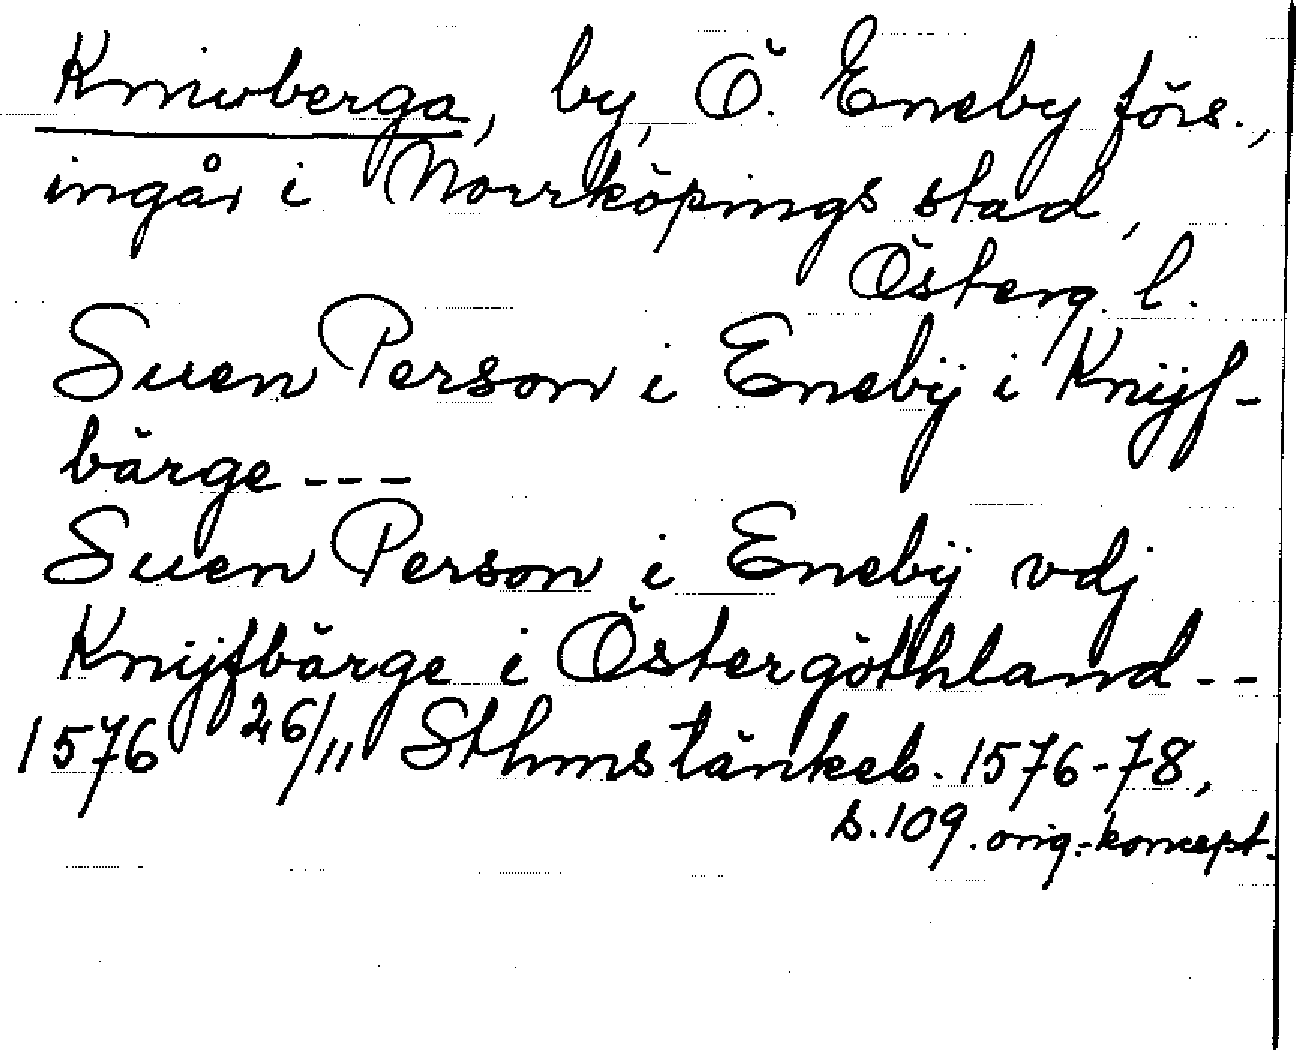 Knivberga, by, Ö. Eneby förs.,
ingår i Norrköpings stad,
Österg. l.
Suen Person i Enebÿ i Knÿf-
bärge ---
Suen Person i Enebÿ vdj
Knÿfbärge i Östergöthland --
1576 26/11 Sthms tänkeb. 1576-78,
s. 109. orig.-koncept.